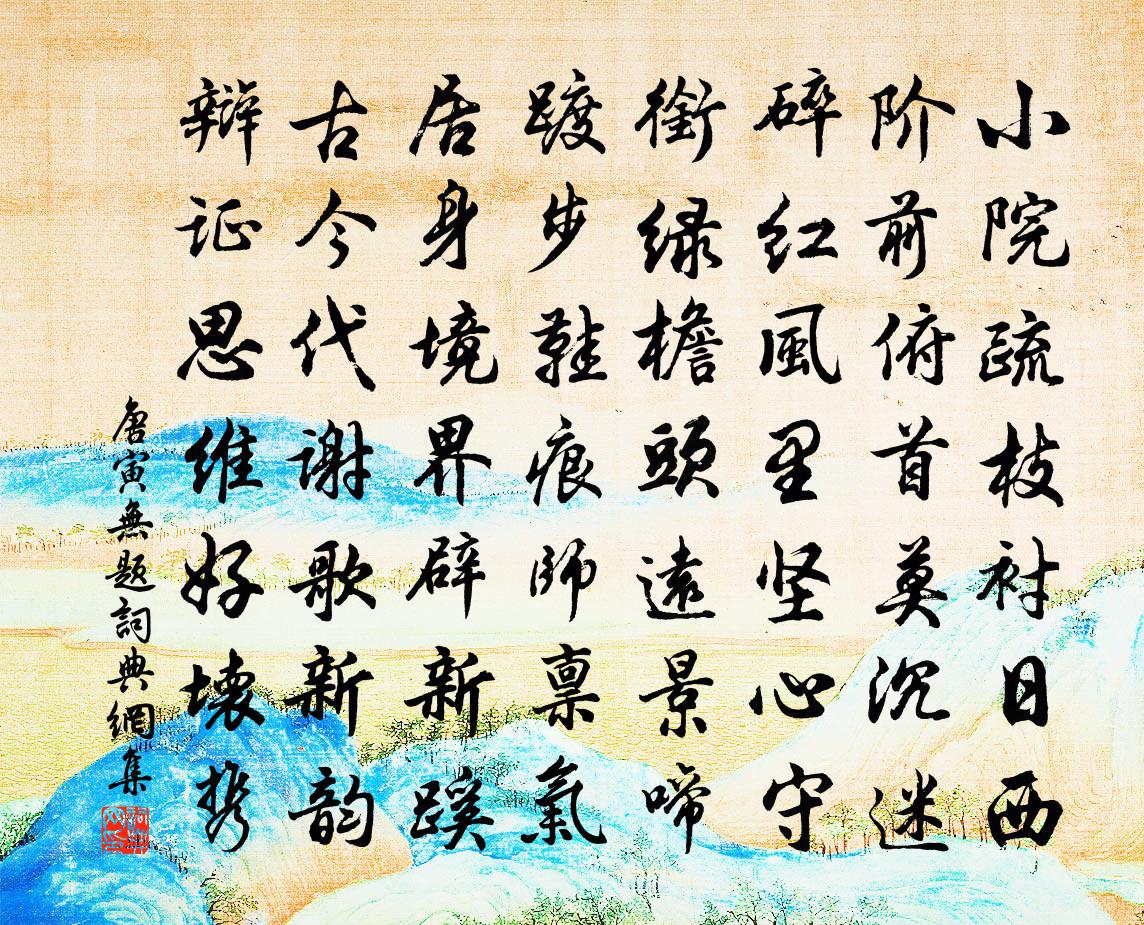 小院疏枝衬日西
阶前俯首莫沉迷
碎红風里坚心守
衔绿檐頭遠景啼
踱步鞋痕師禀氣
居身境界辟新蹊
古今代谢歌新韵
辩证思维好壞携
唐寅無题詞典網集